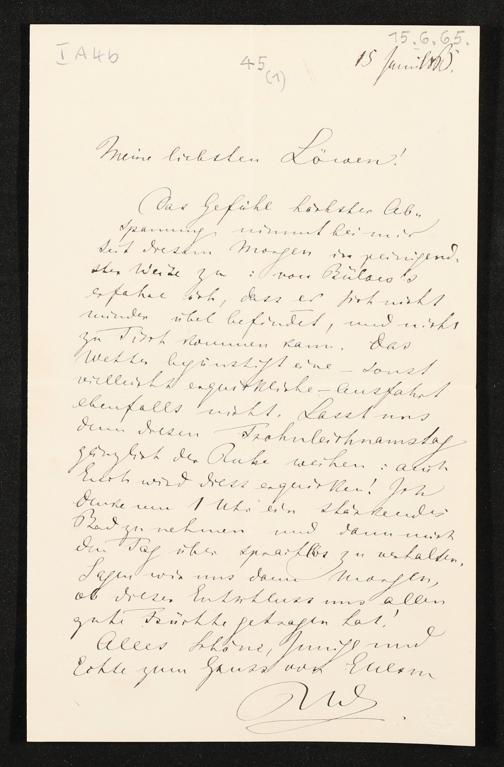 I A 4b
45
(1)
15.6.65.
15 Juni 1865.
Meine liebsten Löwen!
Das Gefühl höchster Ab-
spannung nimmt bei mir
seit diesem Morgen in peinigend-
ster Weise zu: von Bülow's
erfahre ich, dass er sich nicht
minder übel befindet, und nicht
zu Tisch kommen kann. Das
Wetter begünstigt eine – sonst
vielleicht erquickliche – Ausfahrt
ebenfalls nicht. Lasst uns
denn diesen Frohnleichnamstag
gänzlich der Ruhe weihen: auch
Euch wird diess erquicken! Ich
denke um 1 Uhr ein stärkendes
Bad zu nehmen und dann mich
den Tag über sprachlos zu verhalten.
Sagen wir uns dann morgen,
ob dieser Entschluss uns allen
gute Früchte getragen hat!
Alles Schöne, Innige und
Echte zum Gruss von Eurem
RW.